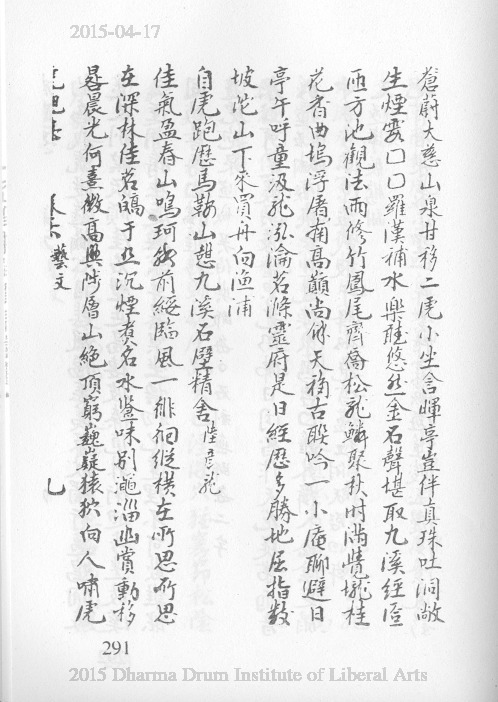 2015-04-17
蒼蔚大慈山泉甘移二虎小坐含暉亭豈伴真珠吐洞敞
生煙雲口口羅漢補水樂聽悠然金石聲堪取九溪經
匝方池觀法雨修竹鳳尾齊喬松龍鱗聚秋时滿覺壠桂
花香曲塢浮屠南高巔尚餘天禧古聯吟一小庵聊避日
亭午呼童汲龍泓瀹茗滌靈府是日經歷多勝地屈指數
坡陀山下來買舟向漁浦
自虎跑歷馬鞍山憩九溪石壁精舍 陸彦龍
佳氣盈春山鳴珂前綏臨風一徘徊縱橫左所思所思
在深林佳茗皜于五沉煙煮名水鑒味別澠淄幽賞動移
晷晨光何熹微高興陟層山絶頂窮巍嶷猿狖向人嘯虎
藝文
291
2015 Dharma Drum Institute of Liberal Arts